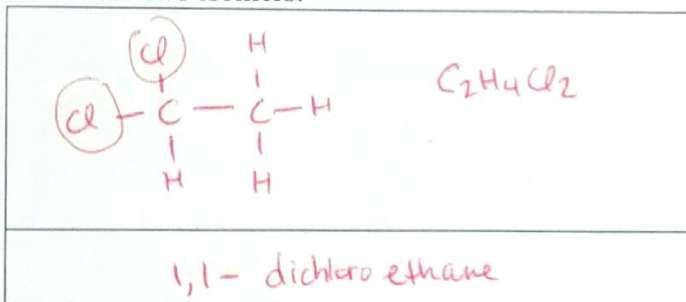 Cl H
Cl - C - C - H C₂H₄Cl₂
H H
1,1 - dichloro ethane